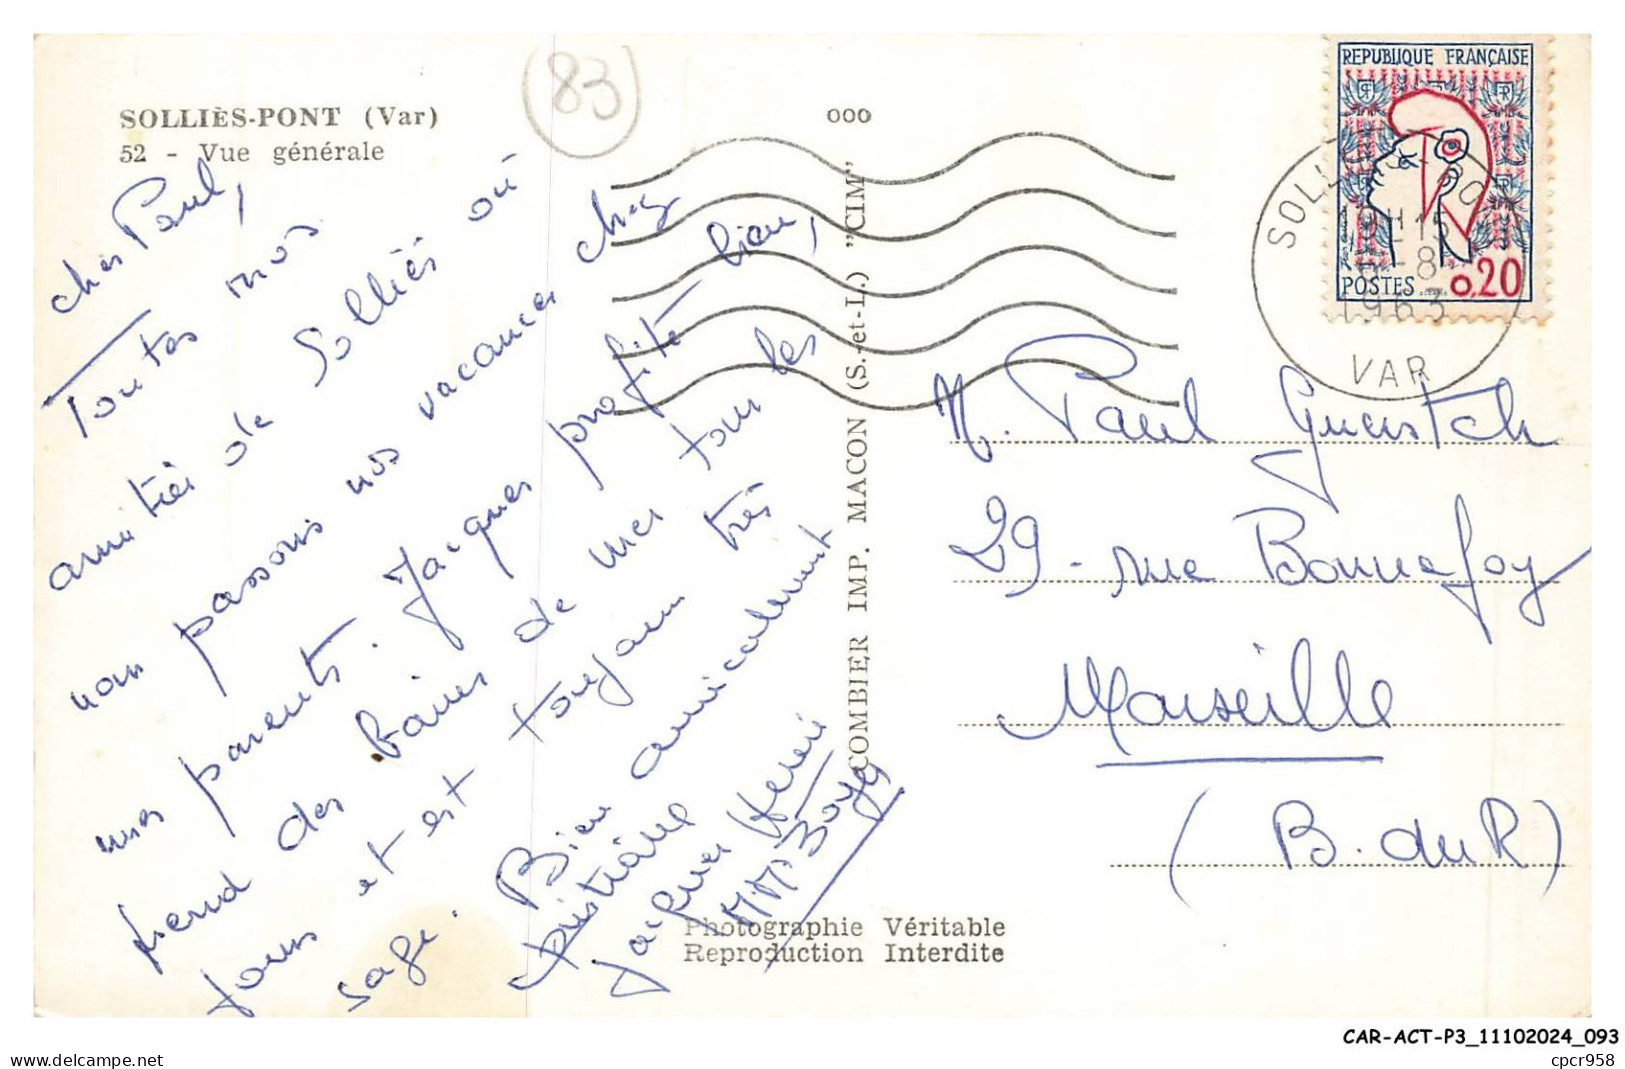 SOLLIÈS-PONT (Var)
52 - Vue générale
83
ooo
cher Paul,
Toutes nos
amitiés de Solliès où
nous passons nos vacances chez
mes parents. Jacques profite bien,
prend des bains de mer tous les
jours et est toujours très
sage. Bien amicalement
Christiane
Jacques Henri
M. M. Boyg
COMBIER IMP. MACON (S.-et-L.) "CIM"
Photographie Véritable
Reproduction Interdite
REPUBLIQUE FRANÇAISE
RF RF
POSTES 0,20
SOLLIES-PONT
19H15
-8
1963
VAR
M. Paul
29 - rue Bonnefoy
Marseille
(B. du R)
CAR-ACT-P3_11102024_093
delcampe.net
cpcr958